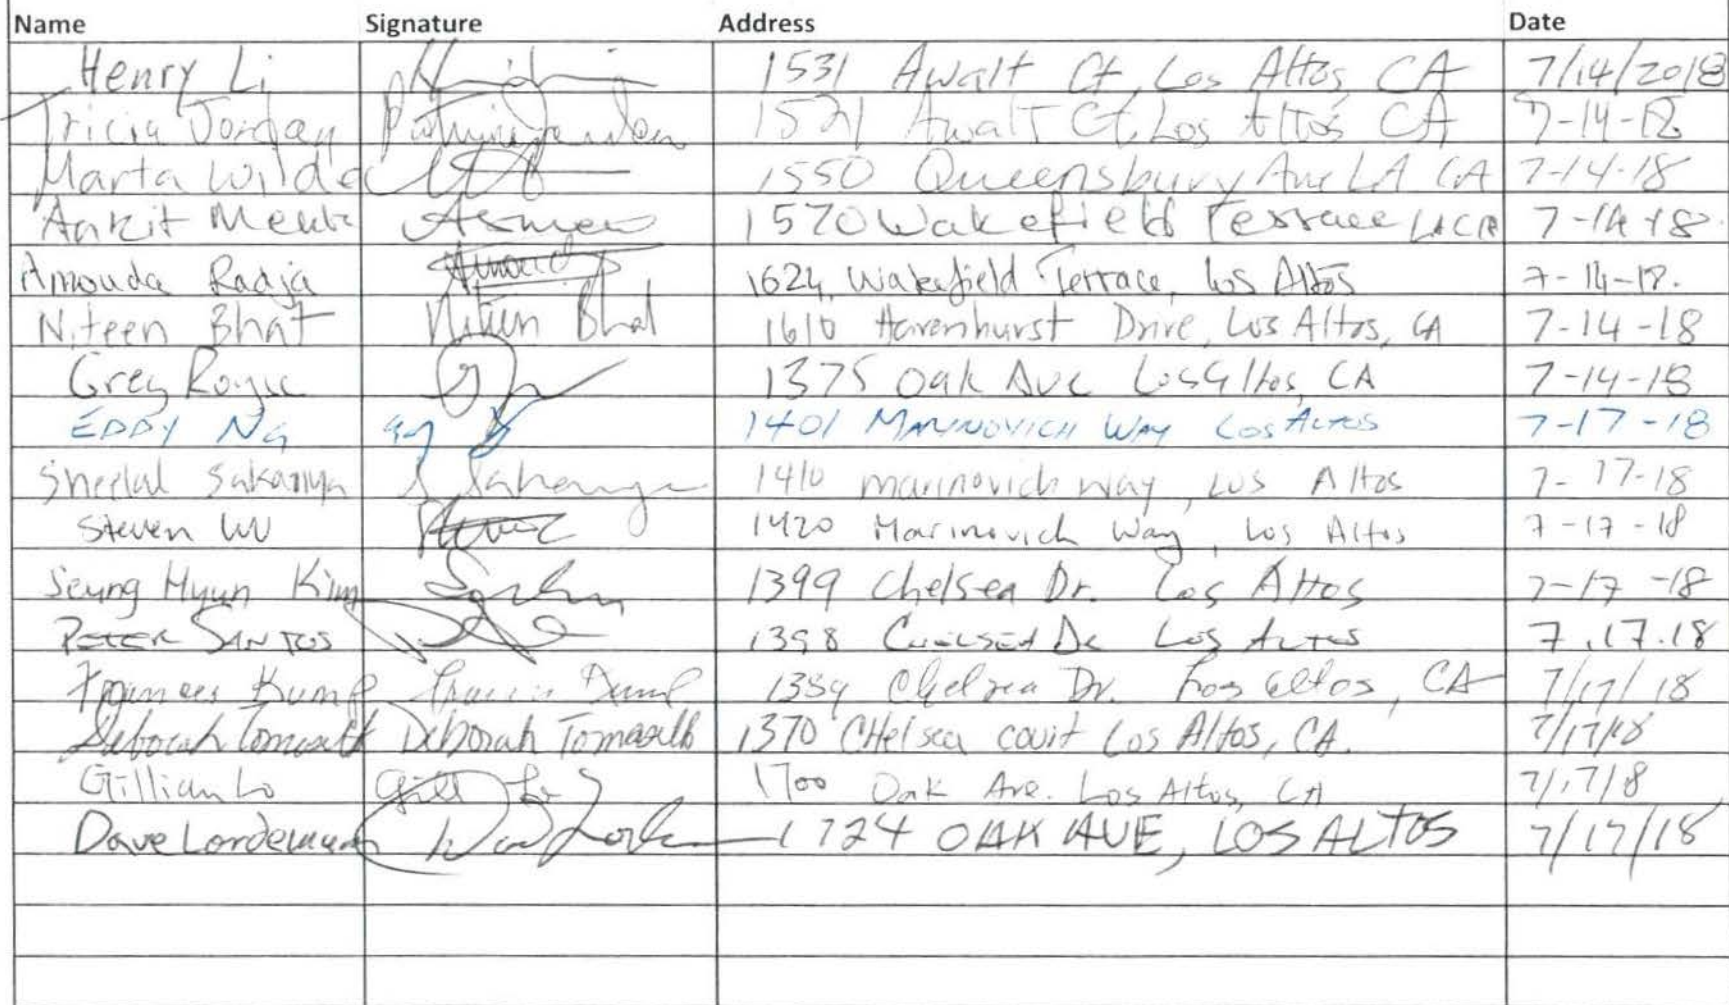 Name Signature Address Date
Henry Li 1531 Awalt Ct, Los Altos, CA 7/14/2018
Tricia Jordan 1521 Awalt Ct, Los Altos CA 7-14-18
Marta Wilde 1550 Queensbury Ave LA CA 7-14-18
Ankit 1570 Wakefield Terrace LA CA 7-14-18
Amouda Radja 1624, Wakefield Terrace, Los Altos 7-14-18.
Niteen Bhat Niteen Bhat 1610 Havenhurst Drive, Los Altos, CA 7-14-18
Greg 1375 Oak Ave Los Altos, CA 7-14-18
EDDY NG 1401 MARINOVICH WAY LOS ALTOS 7-17-18
Sheetal Sakariya 1410 marinovich way, Los Altos 7-17-18
Steven WU 1420 Marinovich Way, Los Altos 7-17-18
Seung Hyun Kim 1399 Chelsea Dr. Los Altos 7-17-18
PETER SANTOS 1398 CHELSEA DR LOS ALTOS 7.17.18
Frances 1389 Chelsea Dr. Los Altos, CA 7/17/18
Deborah Tomasello Deborah Tomasello 1370 CHelsea court Los Altos, CA. 7/17/18
Gillian Lo Gill Lo 1700 Oak Ave. Los Altos, CA 7/17/8
Dave 1724 OAK AVE, LOS ALTOS 7/17/18